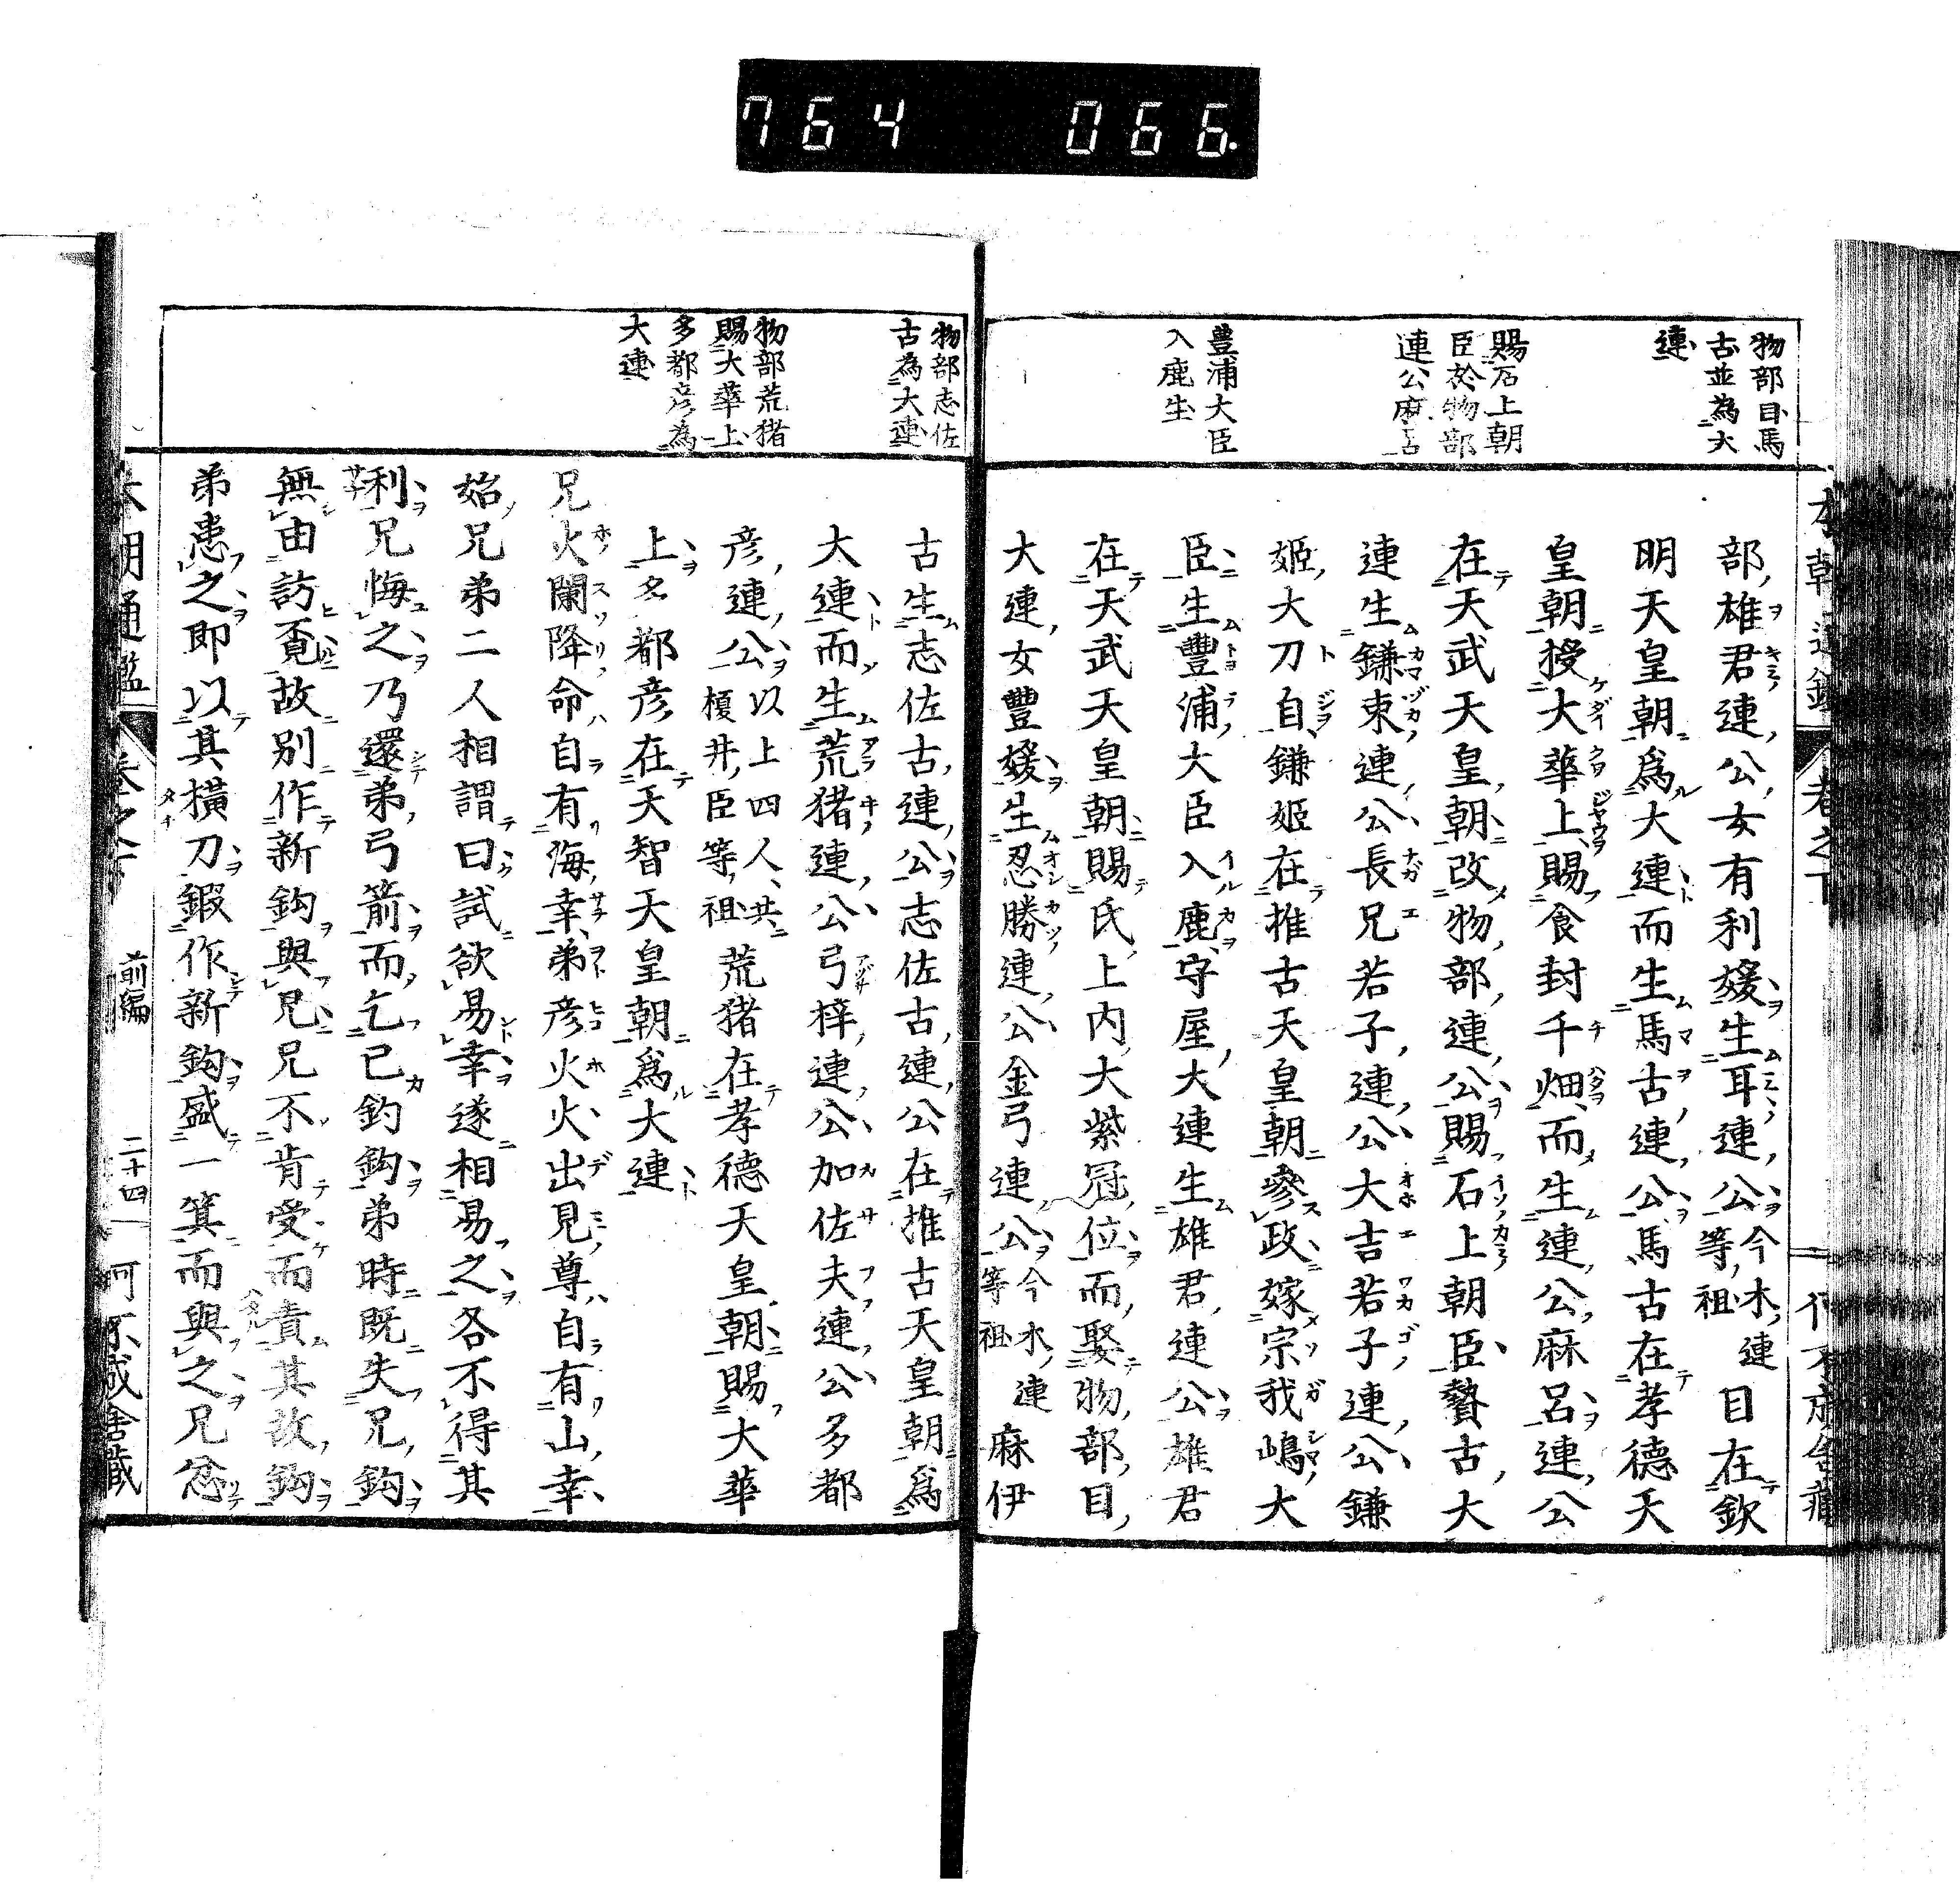 764 066.
物部目馬
古並為大
連
賜石上朝
臣於物部
連公麻呂
豊浦大臣
入鹿生
部雄君連公女有利媛生耳連公今木連等祖目在欽
明天皇朝爲大連而生馬古連公馬古在孝德天
皇朝授大華上賜食封千畑而生連公麻呂連公
在天武天皇朝改物部連公賜石上朝臣贄古大
連生鎌束連公長兄若子連公大吉若子連公鎌
姬大刀自鎌姬在推古天皇朝參政嫁宗我嶋大
臣生豐浦大臣入鹿守屋大連生雄君連公雄君
在天武天皇朝賜氏上内大紫冠位而娶物部目
大連女豐媛生忍勝連公金弓連公今水連等祖麻伊
物部志佐
古為大連
物部荒猪
賜大華上
多都彦為
大連
古生志佐古連公志佐古連公在推古天皇朝爲
大連而生荒猪連公弓梓連公加佐夫連公多都
彦連公以上四人共榎井臣等祖荒猪在孝德天皇朝賜大華
上多都彦在天智天皇朝爲大連
兄火闌降命自有海幸弟彦火火出見尊自有山幸
始兄弟二人相謂曰試欲易幸遂相易之各不得其
利兄悔之乃還弟弓箭而乞己釣鈎弟時既失兄鈎
無由訪覓故別作新鈎與兄兄不肯受而責其故鈎
弟患之即以其横刀鍛作新鈎盛一箕而與之兄忿
本朝通鑑 卷之下 前編 二十四 何不成舍藏